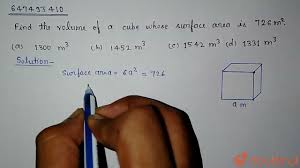 647493410
Find the volume of a cube whose surface area is 726 m².
(a) 1300 m³ (b) 1452 m³ (c) 1542 m³ (d) 1331 m³
Solution-
Surface area = 6a² = 726
a m